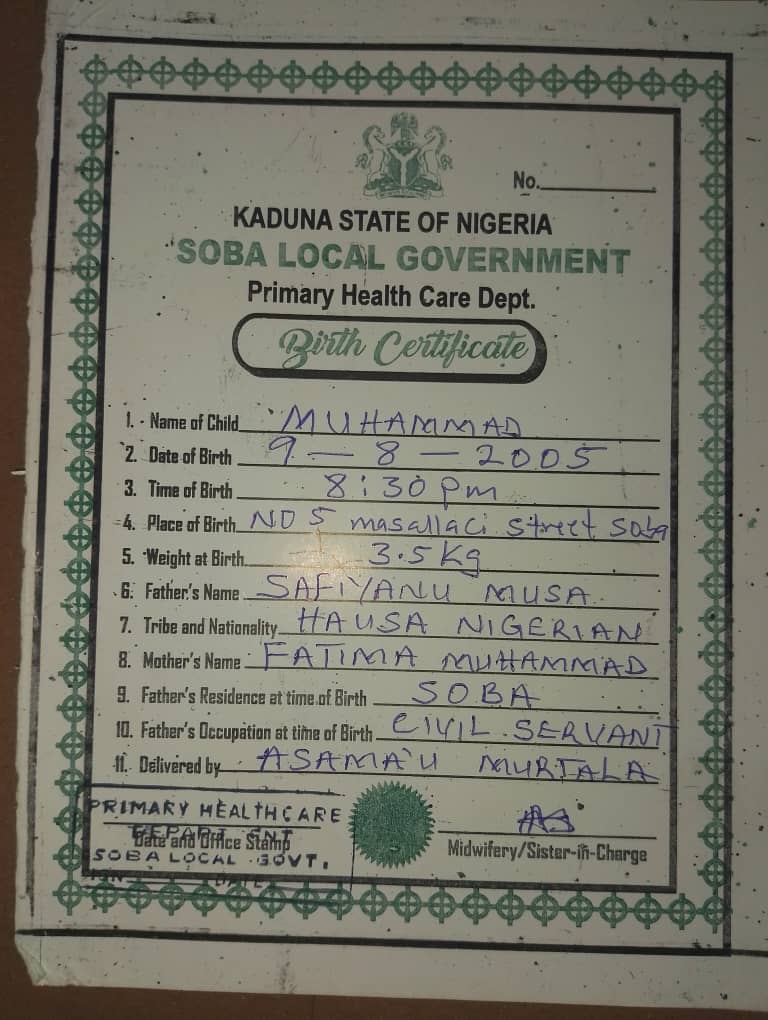 No.
KADUNA STATE OF NIGERIA
SOBA LOCAL GOVERNMENT
Primary Health Care Dept.
Birth Certificate
1. Name of Child MUHAMMAD
2. Date of Birth 9 - 8 - 2005
3. Time of Birth 8:30 pm
4. Place of Birth NO 5 masallaci street Soba
5. Weight at Birth 3.5 Kg
6. Father's Name SAFIYANU MUSA
7. Tribe and Nationality HAUSA NIGERIAN
8. Mother's Name FATIMA MUHAMMAD
9. Father's Residence at time of Birth SOBA
10. Father's Occupation at time of Birth CIVIL SERVANT
11. Delivered by ASAMA'U MURTALA
PRIMARY HEALTHCARE
Date and Office Stamp
SOBA LOCAL GOVT.
DATE
Midwifery/Sister-in-Charge